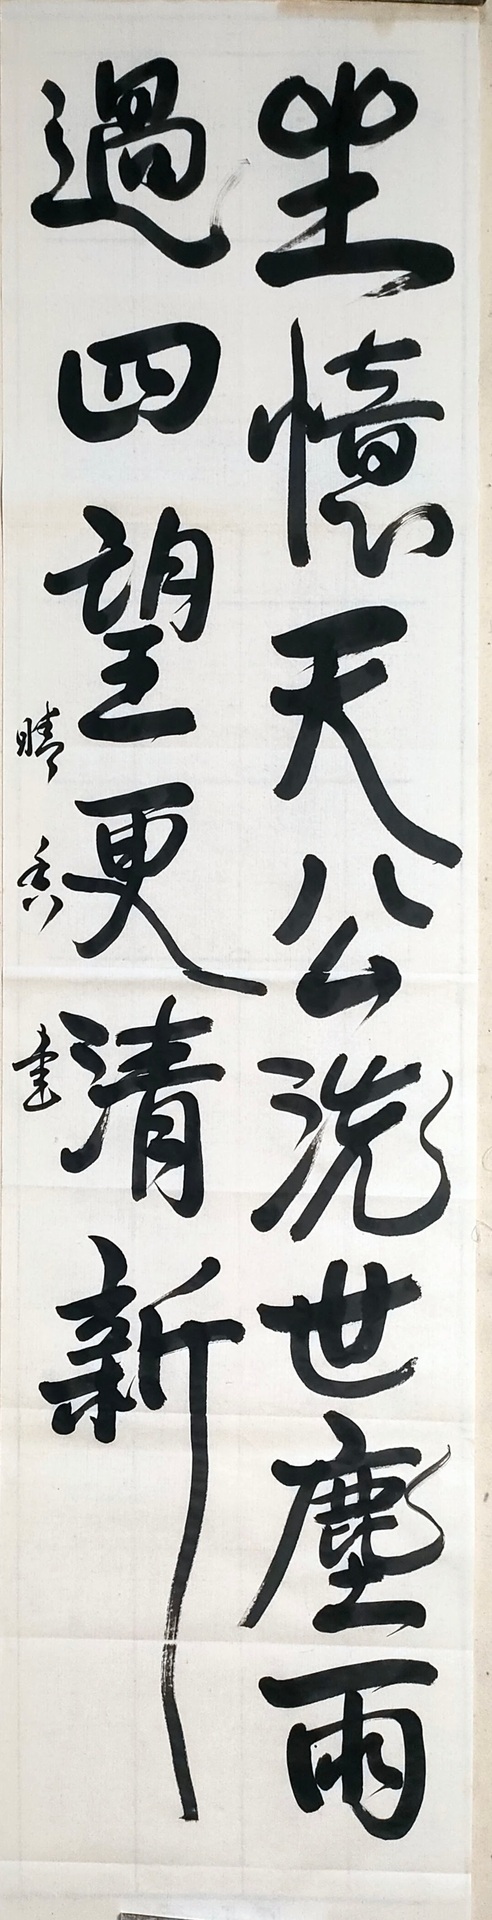 坐憶天公洗世塵雨
過四望更清新
晴香書